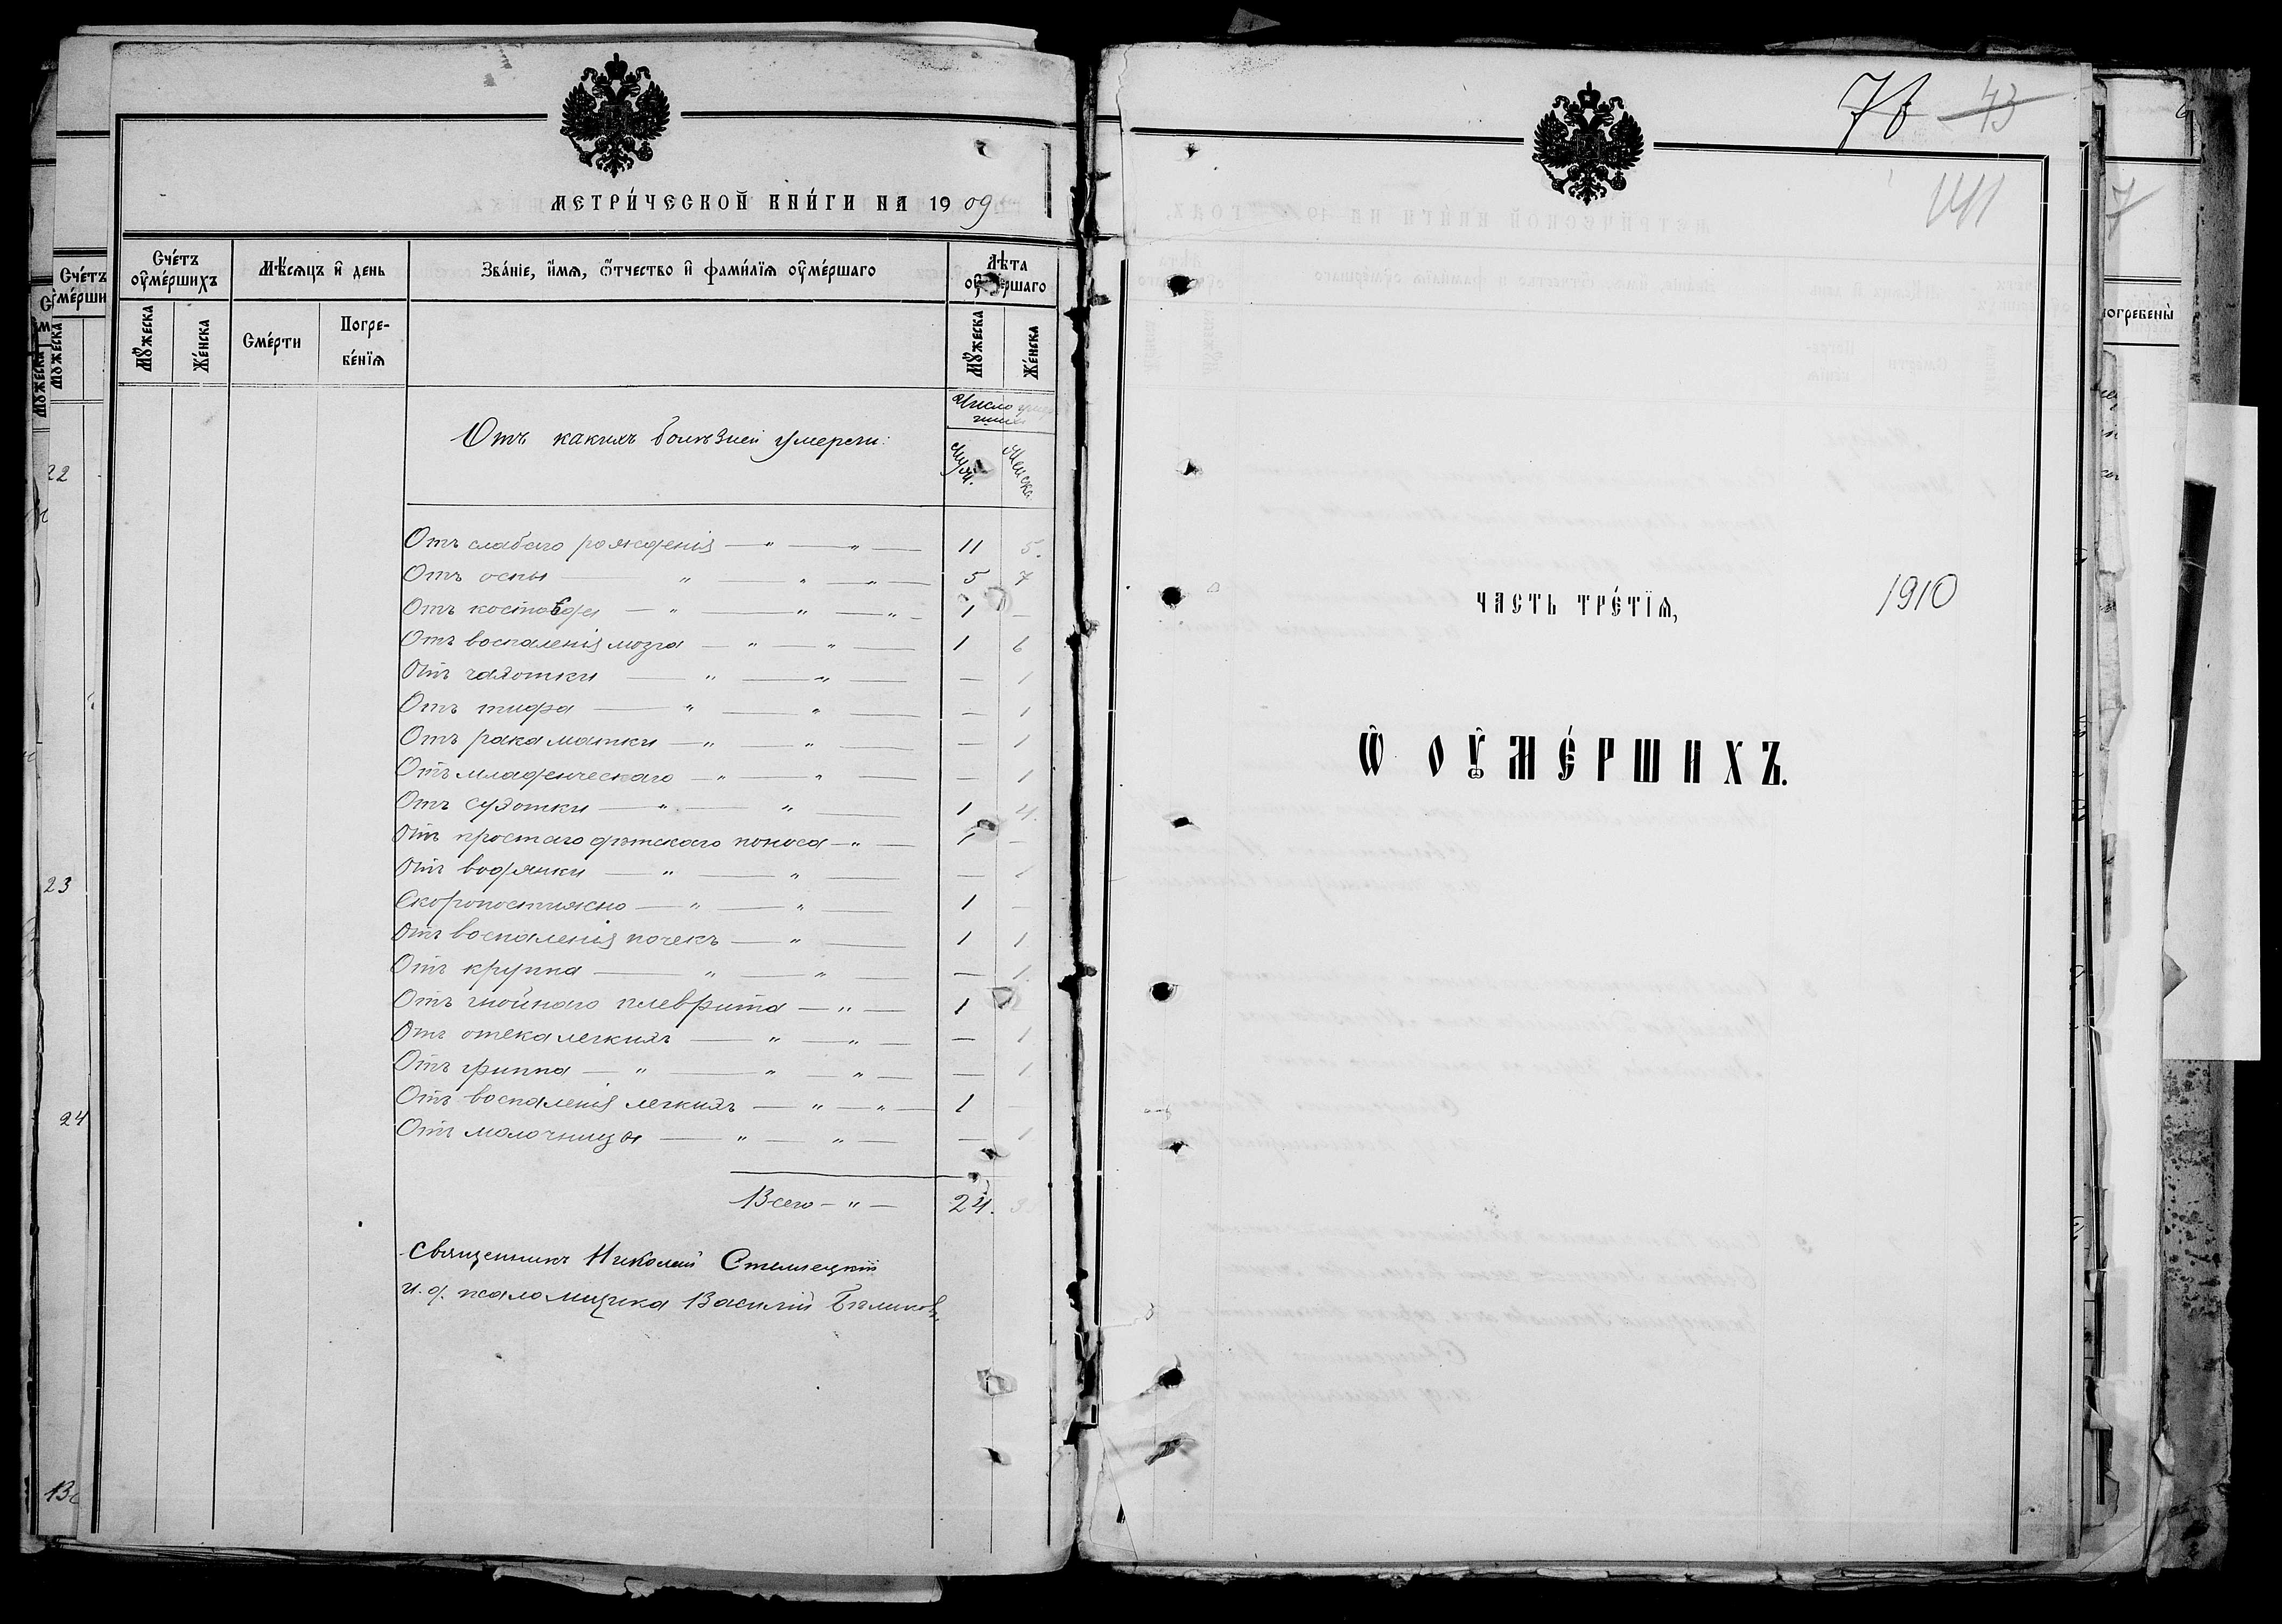 МЕТРИ́ЧЕСКОЙ КНИ́ГИ НА 1909
Сче́тъ ᲂу҆ме́ршихъ
Мѣ́сяцъ и҆ день
Зва́нїе, и҆́мѧ, ѻ҆́тчество и҆ фами́лїѧ ᲂу҆ме́ршагѡ
Лѣ́та ᲂу҆ме́ршаго
Мꙋ́жеска
Же́нска
Сме́рти
Погре-
бе́нїѧ
Мꙋ́жеска
Же́нска
Число
Отъ какихъ болѣзней умерли:
Муж.
Женска
Отъ слабаго рожденія — " — " — 11 5.
Отъ оспы — " — " — " — 5 7
Отъ костоѣды — " — " — " — 1 —
Отъ воспаленія мозга — " — " — 1 6
Отъ чахотки — " — " — — 1
Отъ тифа — " — " — — 1
Отъ рака матки — " — " — — 1
Отъ младенческаго — " — " — — 1
Отъ сухотки — " — " — 1 4.
Отъ простаго дѣтскаго поноса — " — 1 —
Отъ водянки — " — " — — 1
Скоропостижно — " — " — 1 —
Отъ воспаленія почекъ — " — 1 1
Отъ круппа — " — " — 1
Отъ гнойнаго плеврита — " — 1
Отъ отека легкихъ — " — " — — 1
Отъ гриппа — " — " — " — — 1
Отъ воспаленія легкихъ — " — " — 1 —
Отъ молочницы — " — " — — 1
Всего — " — 24.
Священникъ Николай
и. д. псаломщика Василій Бѣликовъ.
Сче́тъ
22
23
24
43
141
ЧАСТЬ ТРЕ́ТЇѦ,
1910
Ѽ ОУ҆МЕ́РШИХЪ.
погребены̀
7